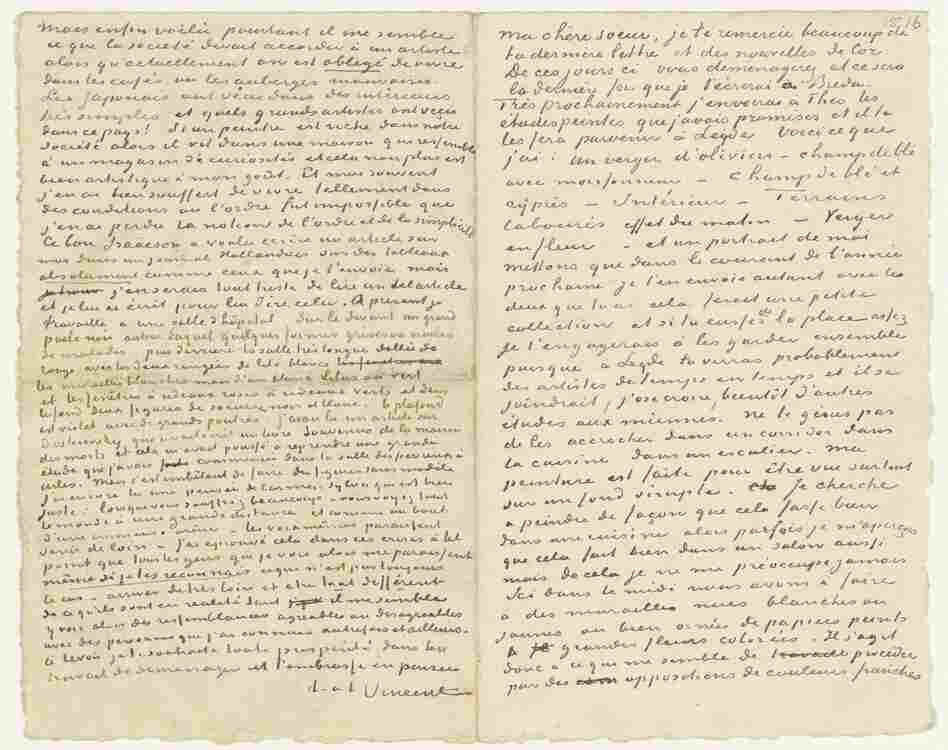 Mais enfin voilà pourtant il me semble
ce que la société devait accorder à un artiste
alors qu'actuellement on est obligé de vivre
dans les cafés ou les auberges mauvaises.
Les Japonais ont vécu dans des intérieurs
très simples et quels grands artistes ont vécu
dans ce pays! Si un peintre est riche dans notre
société alors il vit dans une maison qui ressemble
à un magasin de curiosités et cela non plus est
bien artistique à mon goût. Et moi souvent
j'en ai bien souffert de vivre tellement dans
des conditions où l'ordre fut impossible que
j'en ai perdu la notion de l'ordre et de la simplicité
Ce bon Isaäcson a voulu écrire un article sur
moi dans un journal Hollandais sur des tableaux
absolument comme ceux que je t'envoie mais
j'en serais tout triste de lire un tel article
et je lui ai écrit pour lui dire cela. A présent je
travaille à une salle d'hôpital. Sur le devant un grand
poële noir autour duquel quelques formes grises ou noires
de malades puis derrière la salle très longue dallée de
rouge avec les deux rangées de lits blancs
les murailles blanches mais d'un blanc lilas ou vert
et les fenêtres à rideaux roses à rideaux verts et dans
le fond deux figures de soeurs en noir et blanc. le plafond
est violet avec de grandes poutres. j'avais lu un article sur
Dostoïevsky, qui avait écrit un livre Souvenirs de la maison
des morts et cela m'avait poussé à reprendre une grande
étude que j'avais commencée dans la salle des fiévreux à
Arles. Mais c'est embêtant de faire des figures sans modèle
J'ai encore lu une pensée de Carmen Sylva qui est bien
juste: lorsque vous souffrez beaucoup – vous voyez tout
le monde à une grande distance et comme au bout
d'une immense arène – les voix mêmes paraissent
venir de loin – J'ai éprouvé cela dans ces crises à tel
point que tous les gens que je vois alors me paraissent
même si je les reconnais ce qui n'est pas toujours
le cas – arriver de très loin et être tout différents
de ce qu'ils sont en réalité tant il me semble
y voir alors des ressemblances agréables ou désagréables
avec des personnes que j'ai connues autrefois et ailleurs.
à revoir je te souhaite toute prospérité dans ton
travail de déménager et t'embrasse en pensée
t. à t. Vincent

15 16
ma chère soeur, je te remercie beaucoup de
ta dernière lettre et des nouvelles de Cor.
De ces jours ci vous déménagerez et ce sera
la dernière fois que je t'écrirai à Breda.
Très prochainement j'enverrai à Theo les
études peintes que j'avais promises et il te
les fera parvenir à Leyde. Voici ce que
j'ai: un verger d'oliviers – champ de blé
avec moissonneur – champ de blé et
cyprès – Intérieur – Terrains
labourés effet du matin – Verger
en fleur – et un portrait de moi
mettons que dans le courant de l'année
prochaine je t'en envoie autant avec les
deux que tu as cela ferait une petite
collection et si tu eusses eu la place assez
je t'engagerais à les garder ensemble
puisque à Leyde tu verras probablement
des artistes de temps en temps et il se
joindrait, j'ose croire, bientôt d'autres
études aux miennes. ne te gênes pas
de les accrocher dans un corridor dans
la cuisine dans un escalier. Ma
peinture est faite pour être vue surtout
sur un fond simple. Je cherche
à peindre de façon que cela fasse bien
dans une cuisine alors parfois je m'aperçois
que cela fait bien dans un salon aussi
mais de cela je ne me préoccupe jamais
Ici dans le midi nous avons à faire
à des murailles nues blanches ou
jaunes ou bien ornées de papiers peints
à grandes fleurs colorées. Il s'agit
donc à ce qui me semble de procéder
par des oppositions de couleurs franches